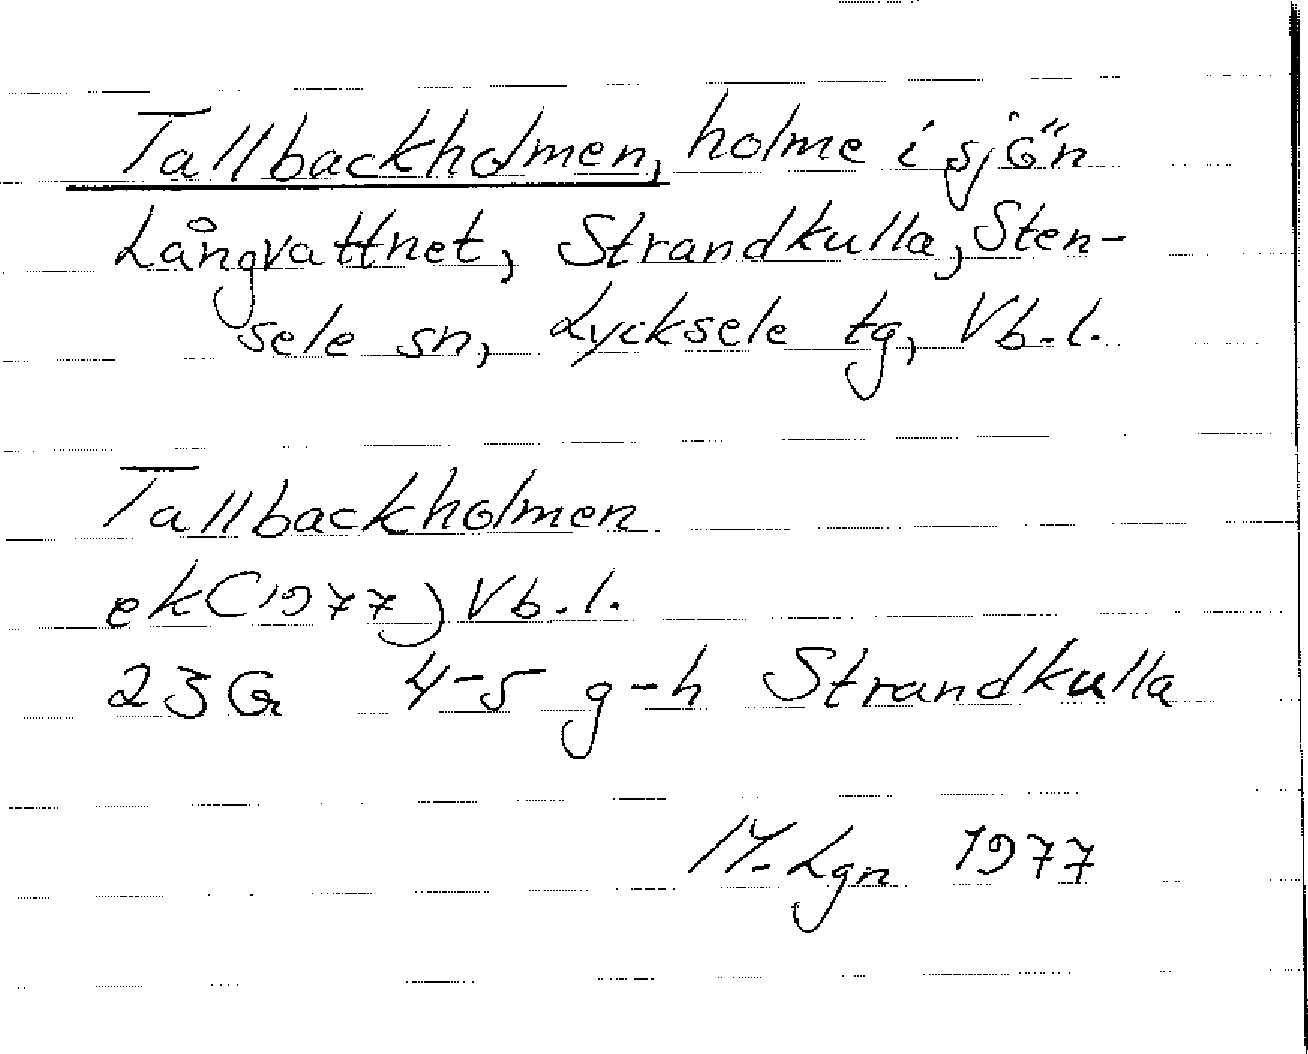 Tallbackholmen, holme i sjön
Långvattnet, Strandkulla, Sten-
sele sn, Lycksele tg, Vb.l.
Tallbackholmen
ek (1977) Vb.l.
23G 4-5 g-h Strandkulla
M. Lgn 1977